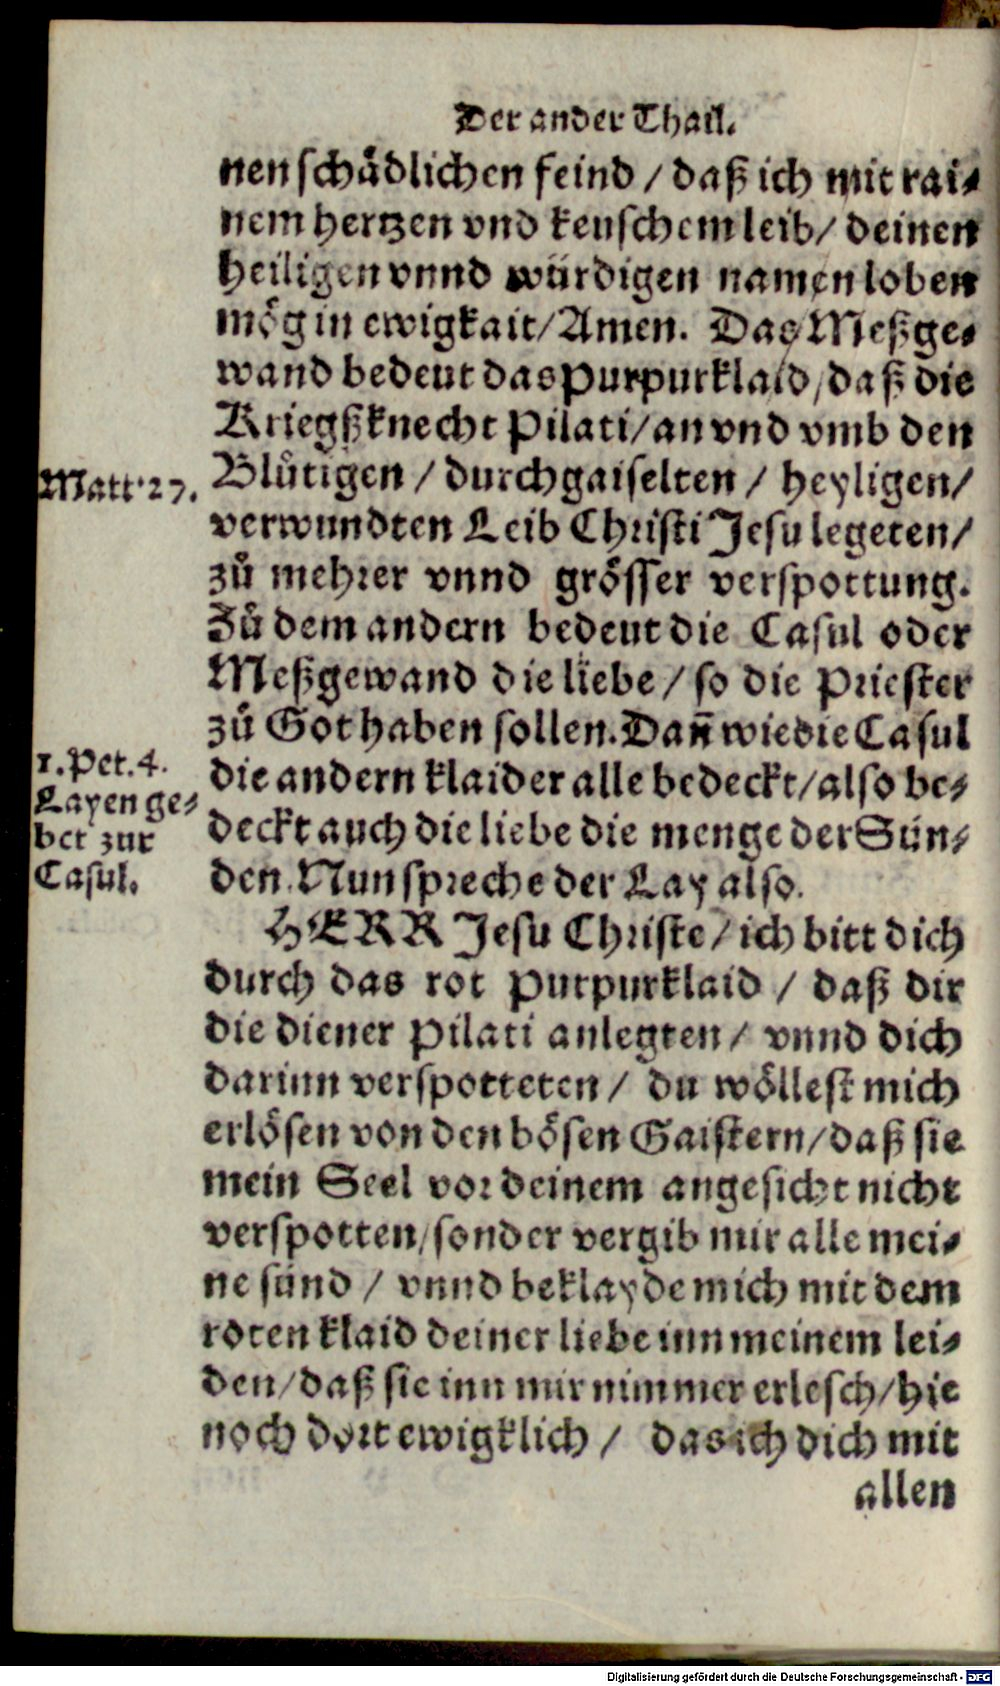 Der ander Thail.
nen schådlichen feind / daß ich mit rai⸗
nem hertzen vnd keuschem leib / deinen
heiligen vnnd würdigen namen loben
mög in ewigkait / Amen. Das Meßge⸗
wand bedeut das Purpurklaid / daß die
Kriegßknecht Pilati / an vnd vmb den
Matt. 27.
Blůtigen / durchgaiselten / heyligen /
verwundten Leib Christi Jesu legeten /
zů mehrer vnnd grösser verspottung.
Zů dem andern bedeut die Casul oder
Meßgewand die liebe / so die Priester
zů Got haben sollen. Dañ wie die Casul
1. Pet. 4.
Layen ge⸗
bet zur
Casul.
die andern klaider alle bedeckt / also be⸗
deckt auch die liebe die menge der Sün⸗
den. Nun spreche der Lay also.
HERR Jesu Christe / ich bitt dich
durch das rot Purpurklaid / daß dir
die diener Pilati anlegten / vnnd dich
darinn verspotteten / du wöllest mich
erlösen von den bösen Gaistern / daß sie
mein Seel vor deinem angesicht nicht
verspotten / sonder vergib mir alle mei⸗
ne sünd / vnnd beklayde mich mit dem
roten klaid deiner liebe inn meinem lei⸗
den / daß sie inn mir nimmer erlesch / hie
noch dort ewigklich / das ich dich mit
allen
Digitalisierung gefördert durch die Deutsche Forschungsgemeinschaft - DFG